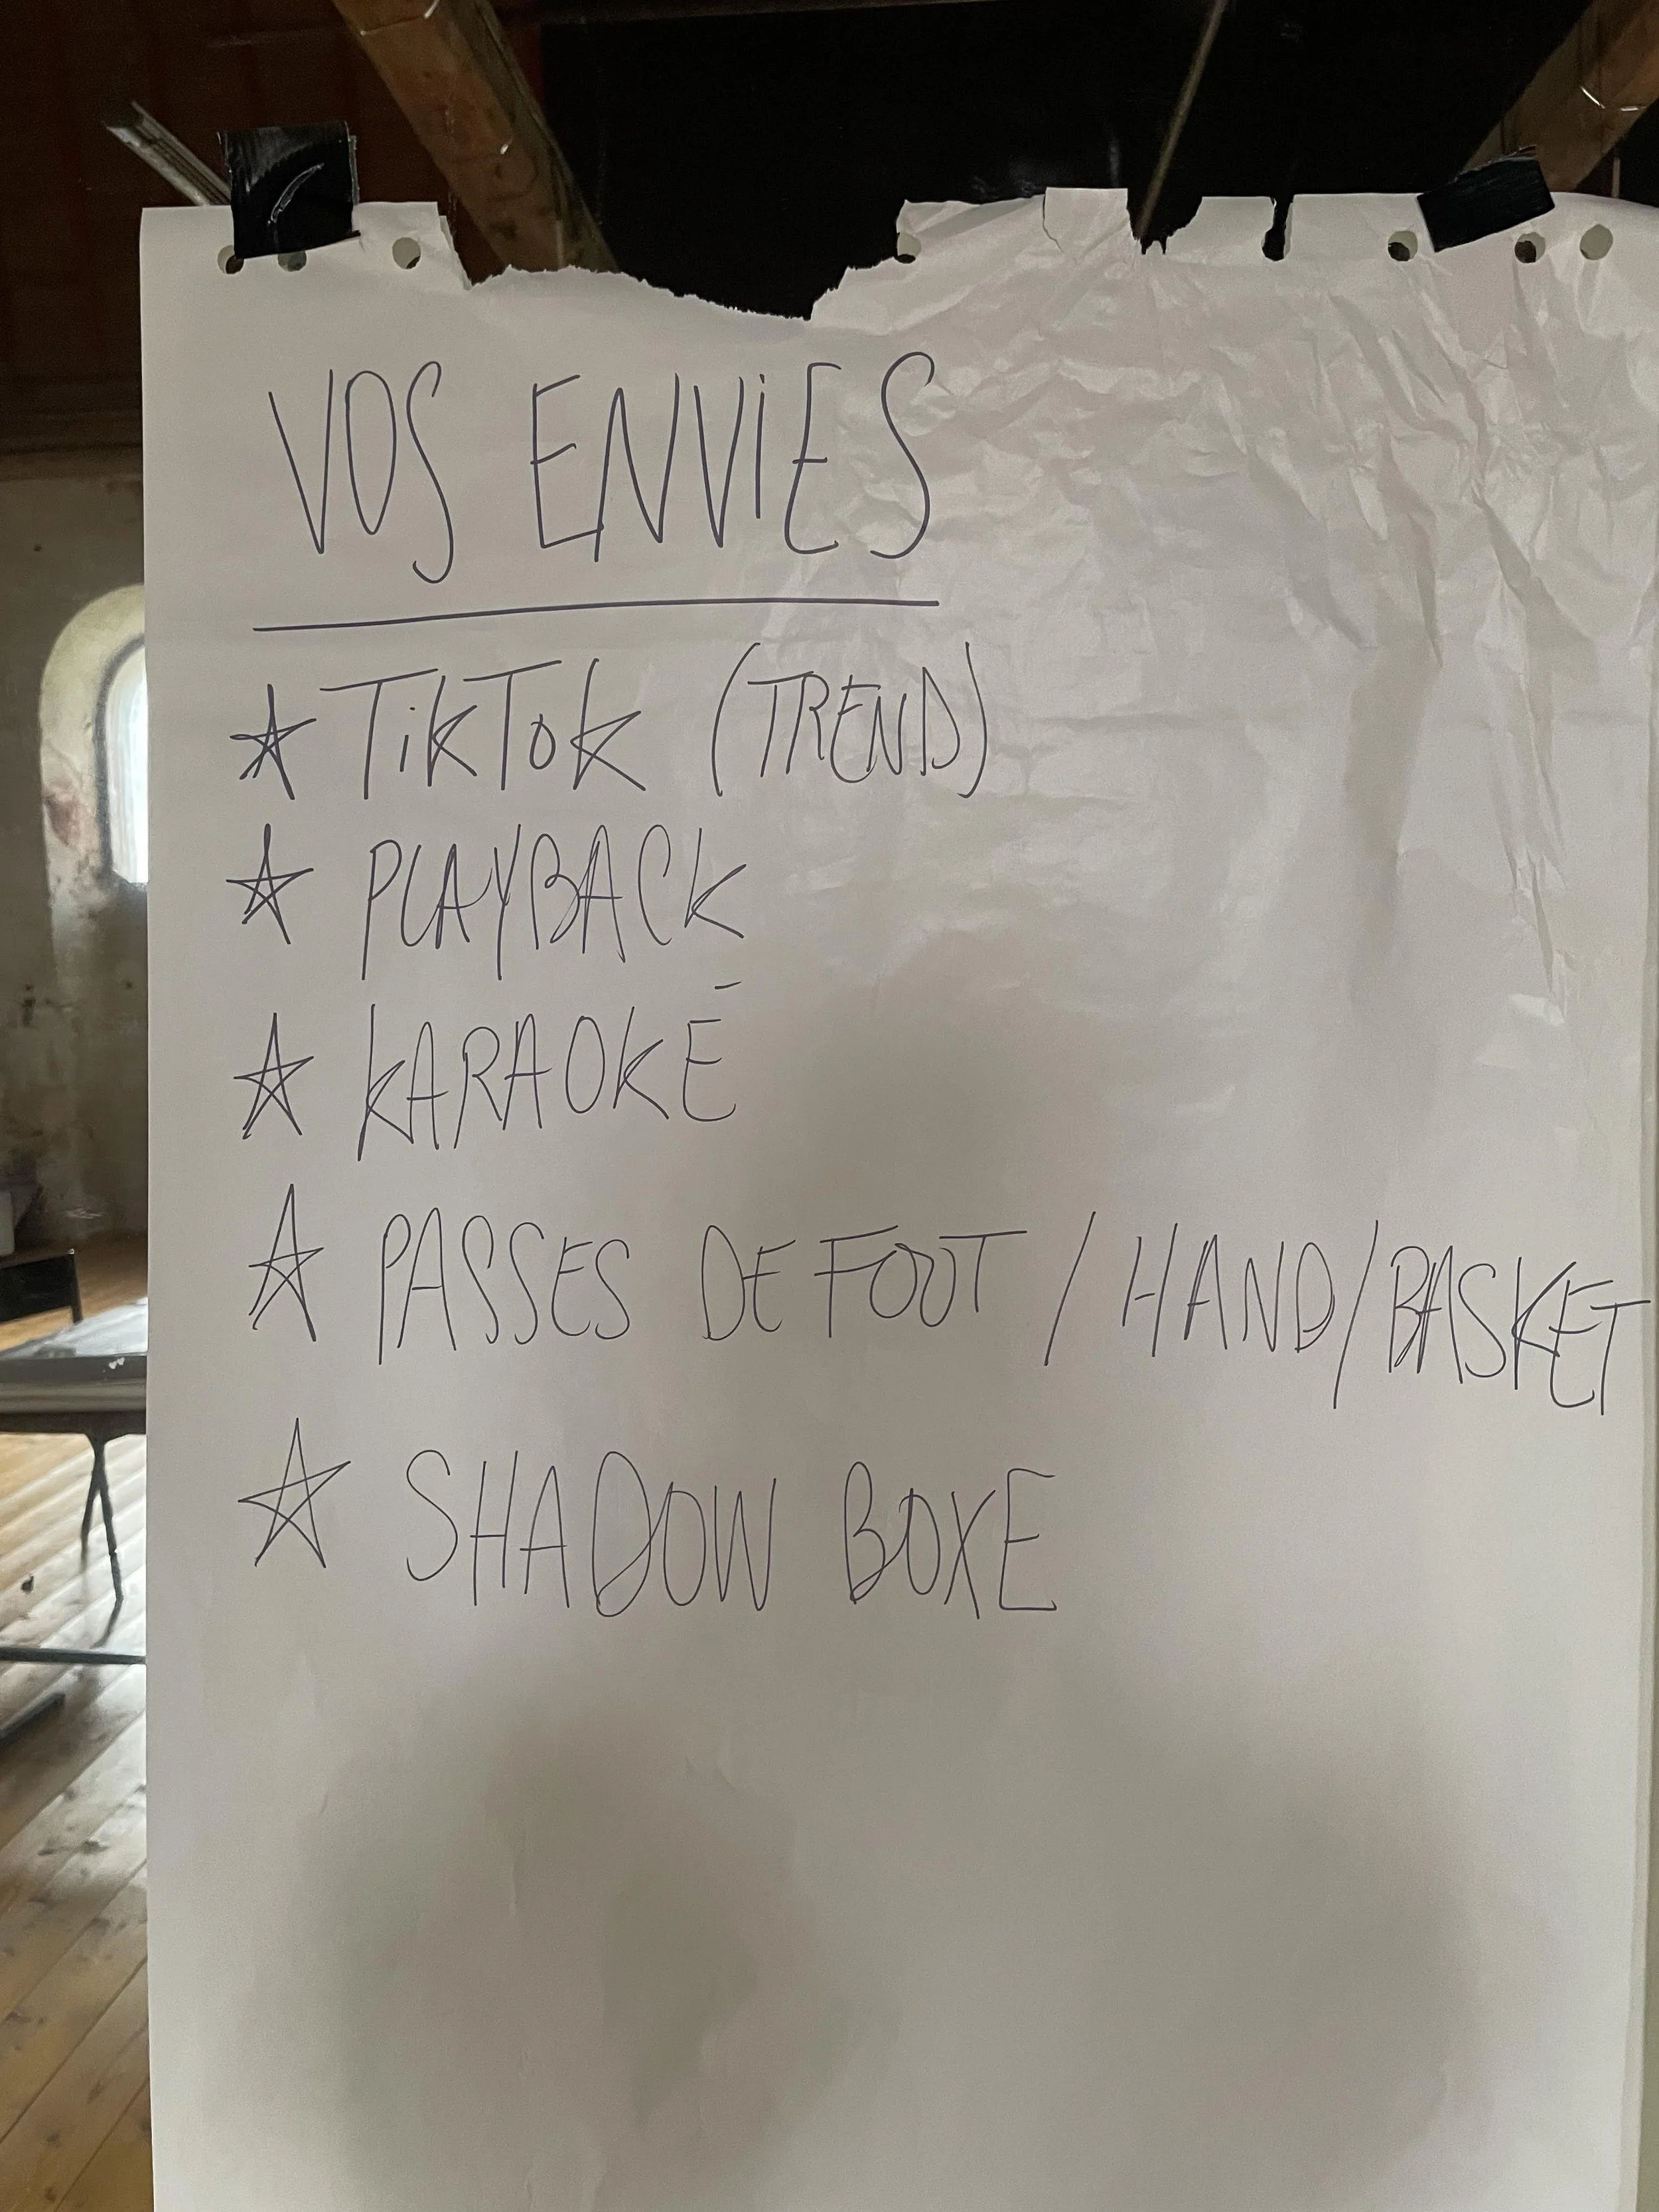 VOS ENViES
☆ TikTok (TREND)
☆ PLAYBACK
☆ KARAOKÉ
☆ PASSES DE FOOT / HAND/BASKET
☆ SHADOW BOXE